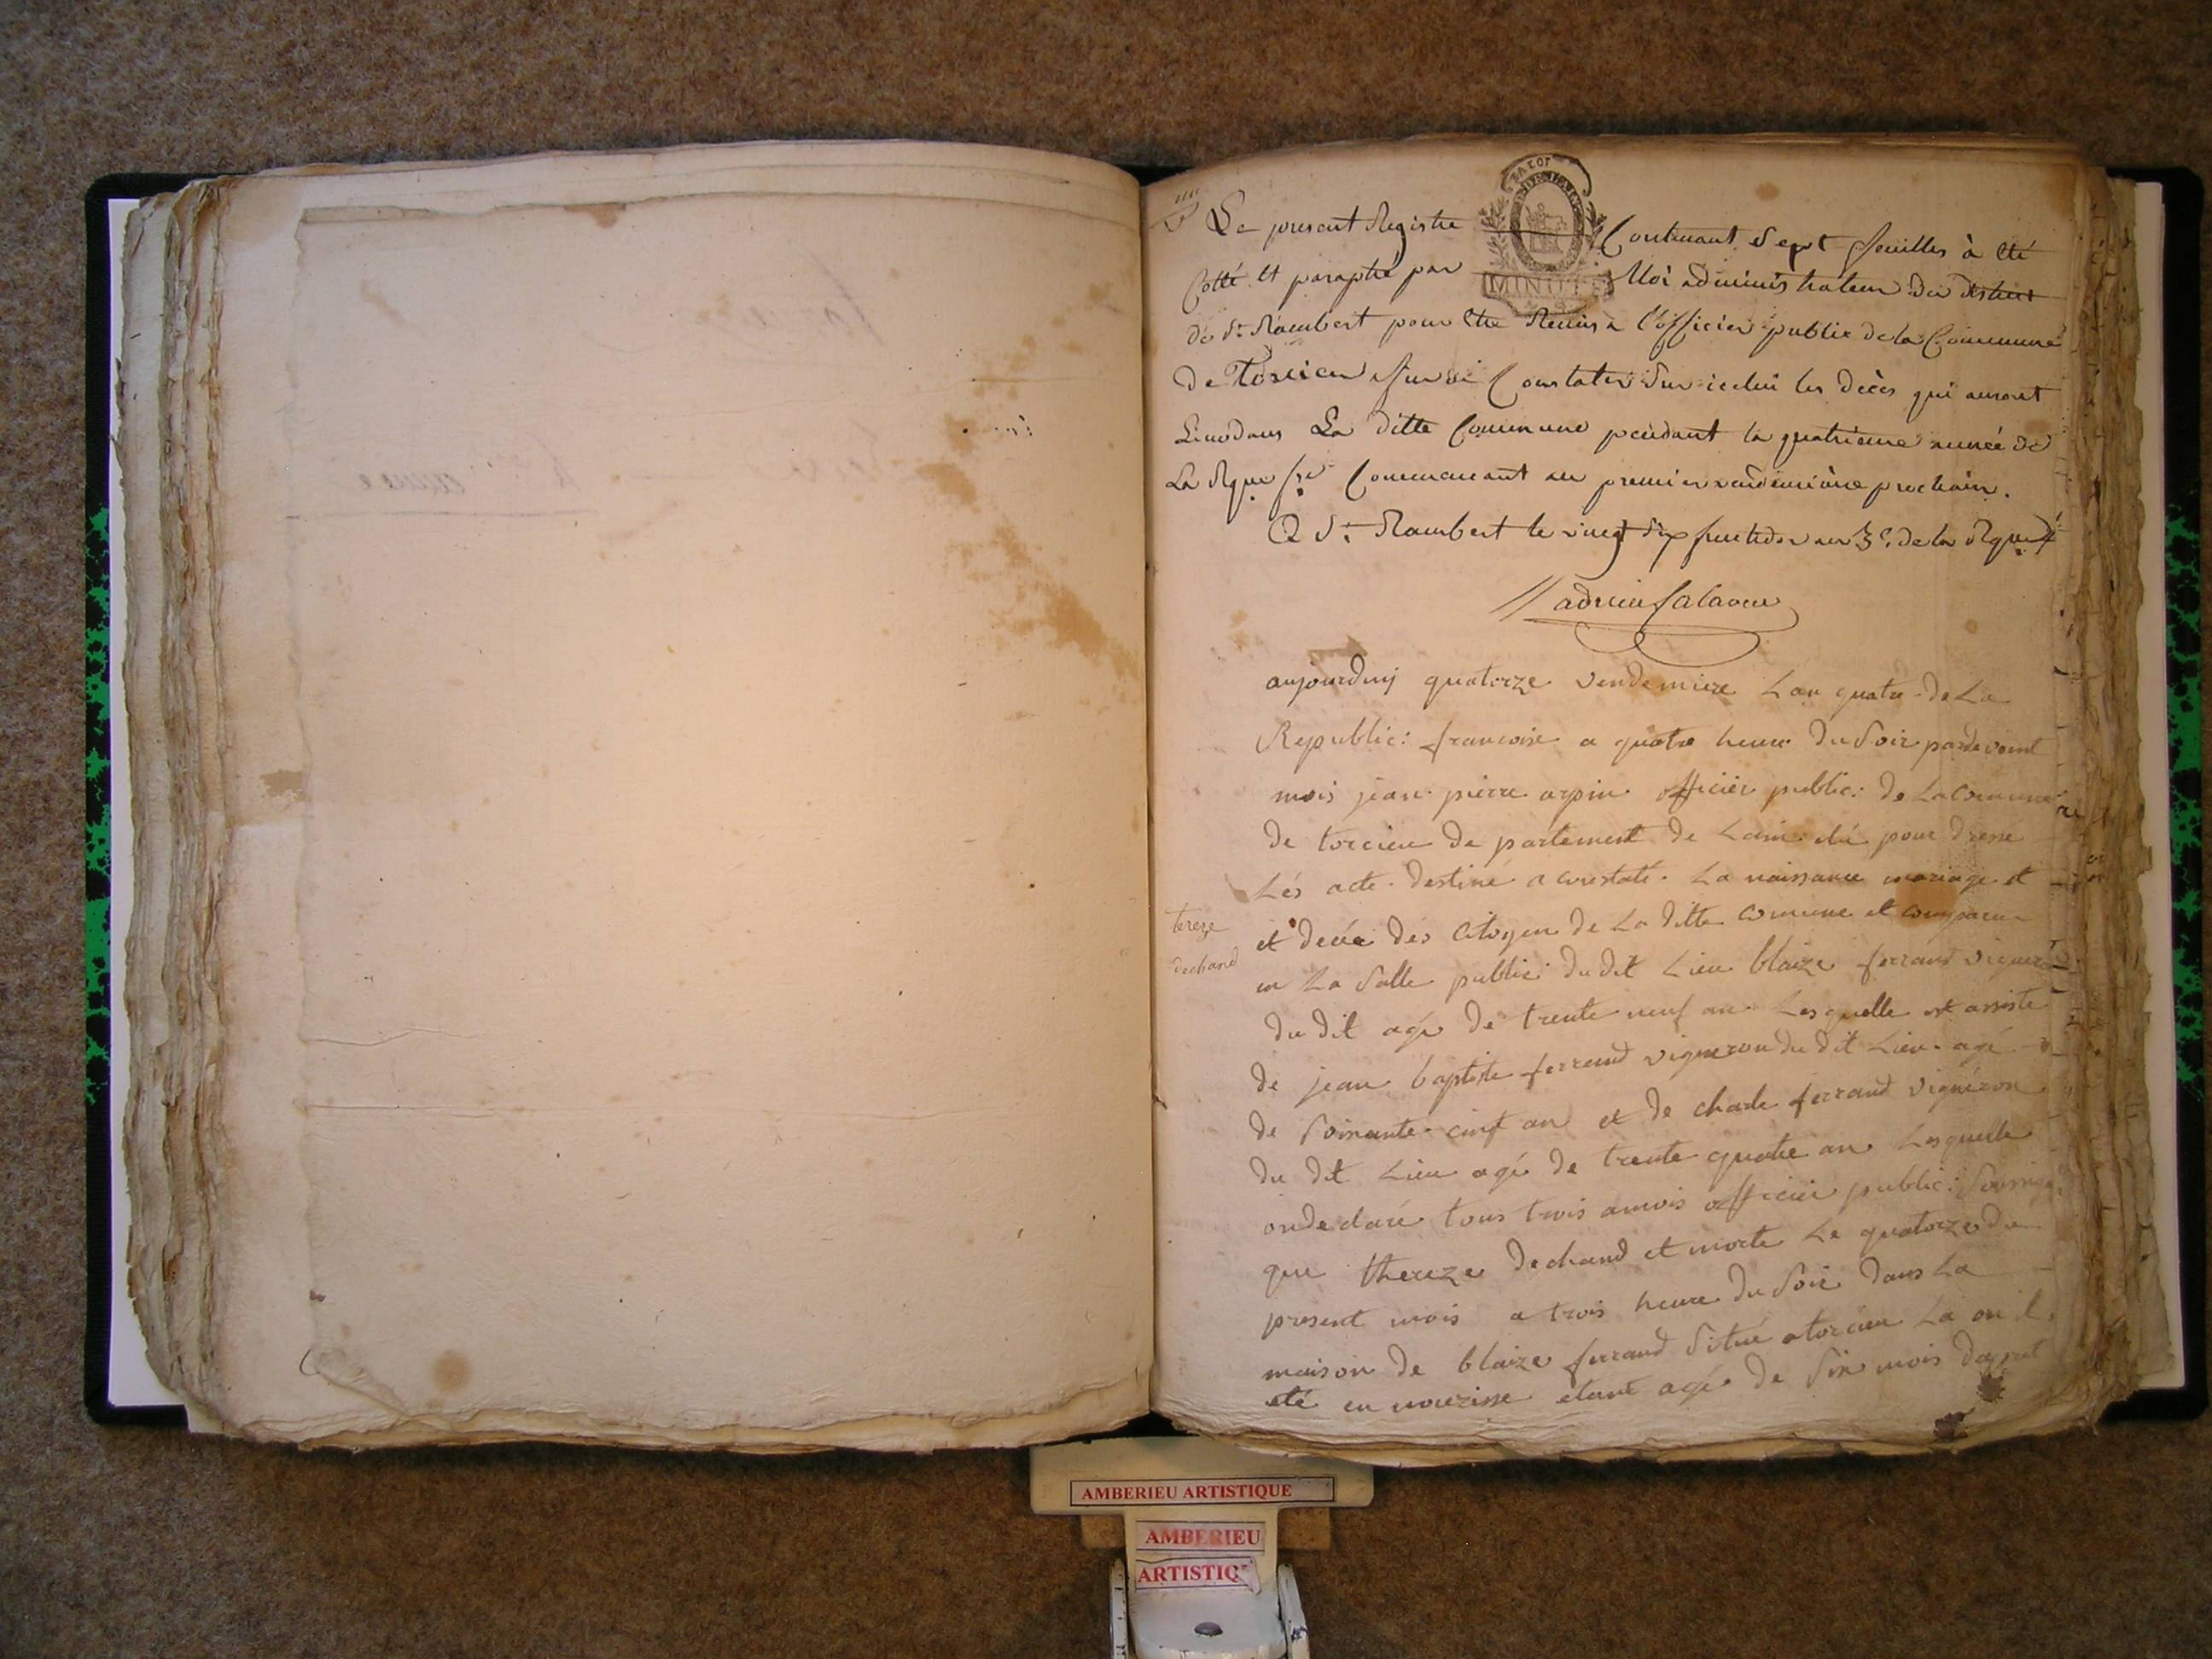 Le present Registre Contenant Sept feuilles à eté
Cotté et paraphé par Moi administrateur du district
MINUTE
de St. Rambert pour être Remis a l'officier public de la Commune
De Torcieu Constater Sur icelui les décès qui auront
Lieu dans La ditte Commune pendant la quatrieme année de
La Rque fse Commencant au premier vendemiaire prochain.
A St. Rambert le vingt Six fructidor an 3e. de la Rque f
aujourduij quatorze vendemiere Lan quatre de La
Republic: francoise a quatre heure du Soir pardevant
mois jean pierre arpin officier public: de La Comune
de torcieu de partement de Lain élu pour dresse
Lés acte destiné a constaté La naissance mariage et
et decée des Citoyen de La ditte Comune et comparu
tereze
dechand
en La Salle public: du dit Lieu blaize ferrand vigneron
du dit agé de trente neuf an Lesquelle est assiste
de jean baptiste ferrand vigneron du dit Lieu agé
de soixante cinq an et de charle ferrand vigneron
du dit Lieu agé de trente quatre an Lesquelle
on declaré tous trois amois officier public: Soussigné
que thereze dechand et morte Le quatorze du
present mois a trois heure du Soir dans La
maison de blaize ferrand Situé a torcieu La ou il
eté en nourisse etant agé de Six mois
AMBERIEU ARTISTIQUE
AMBERIEU
ARTISTIQ